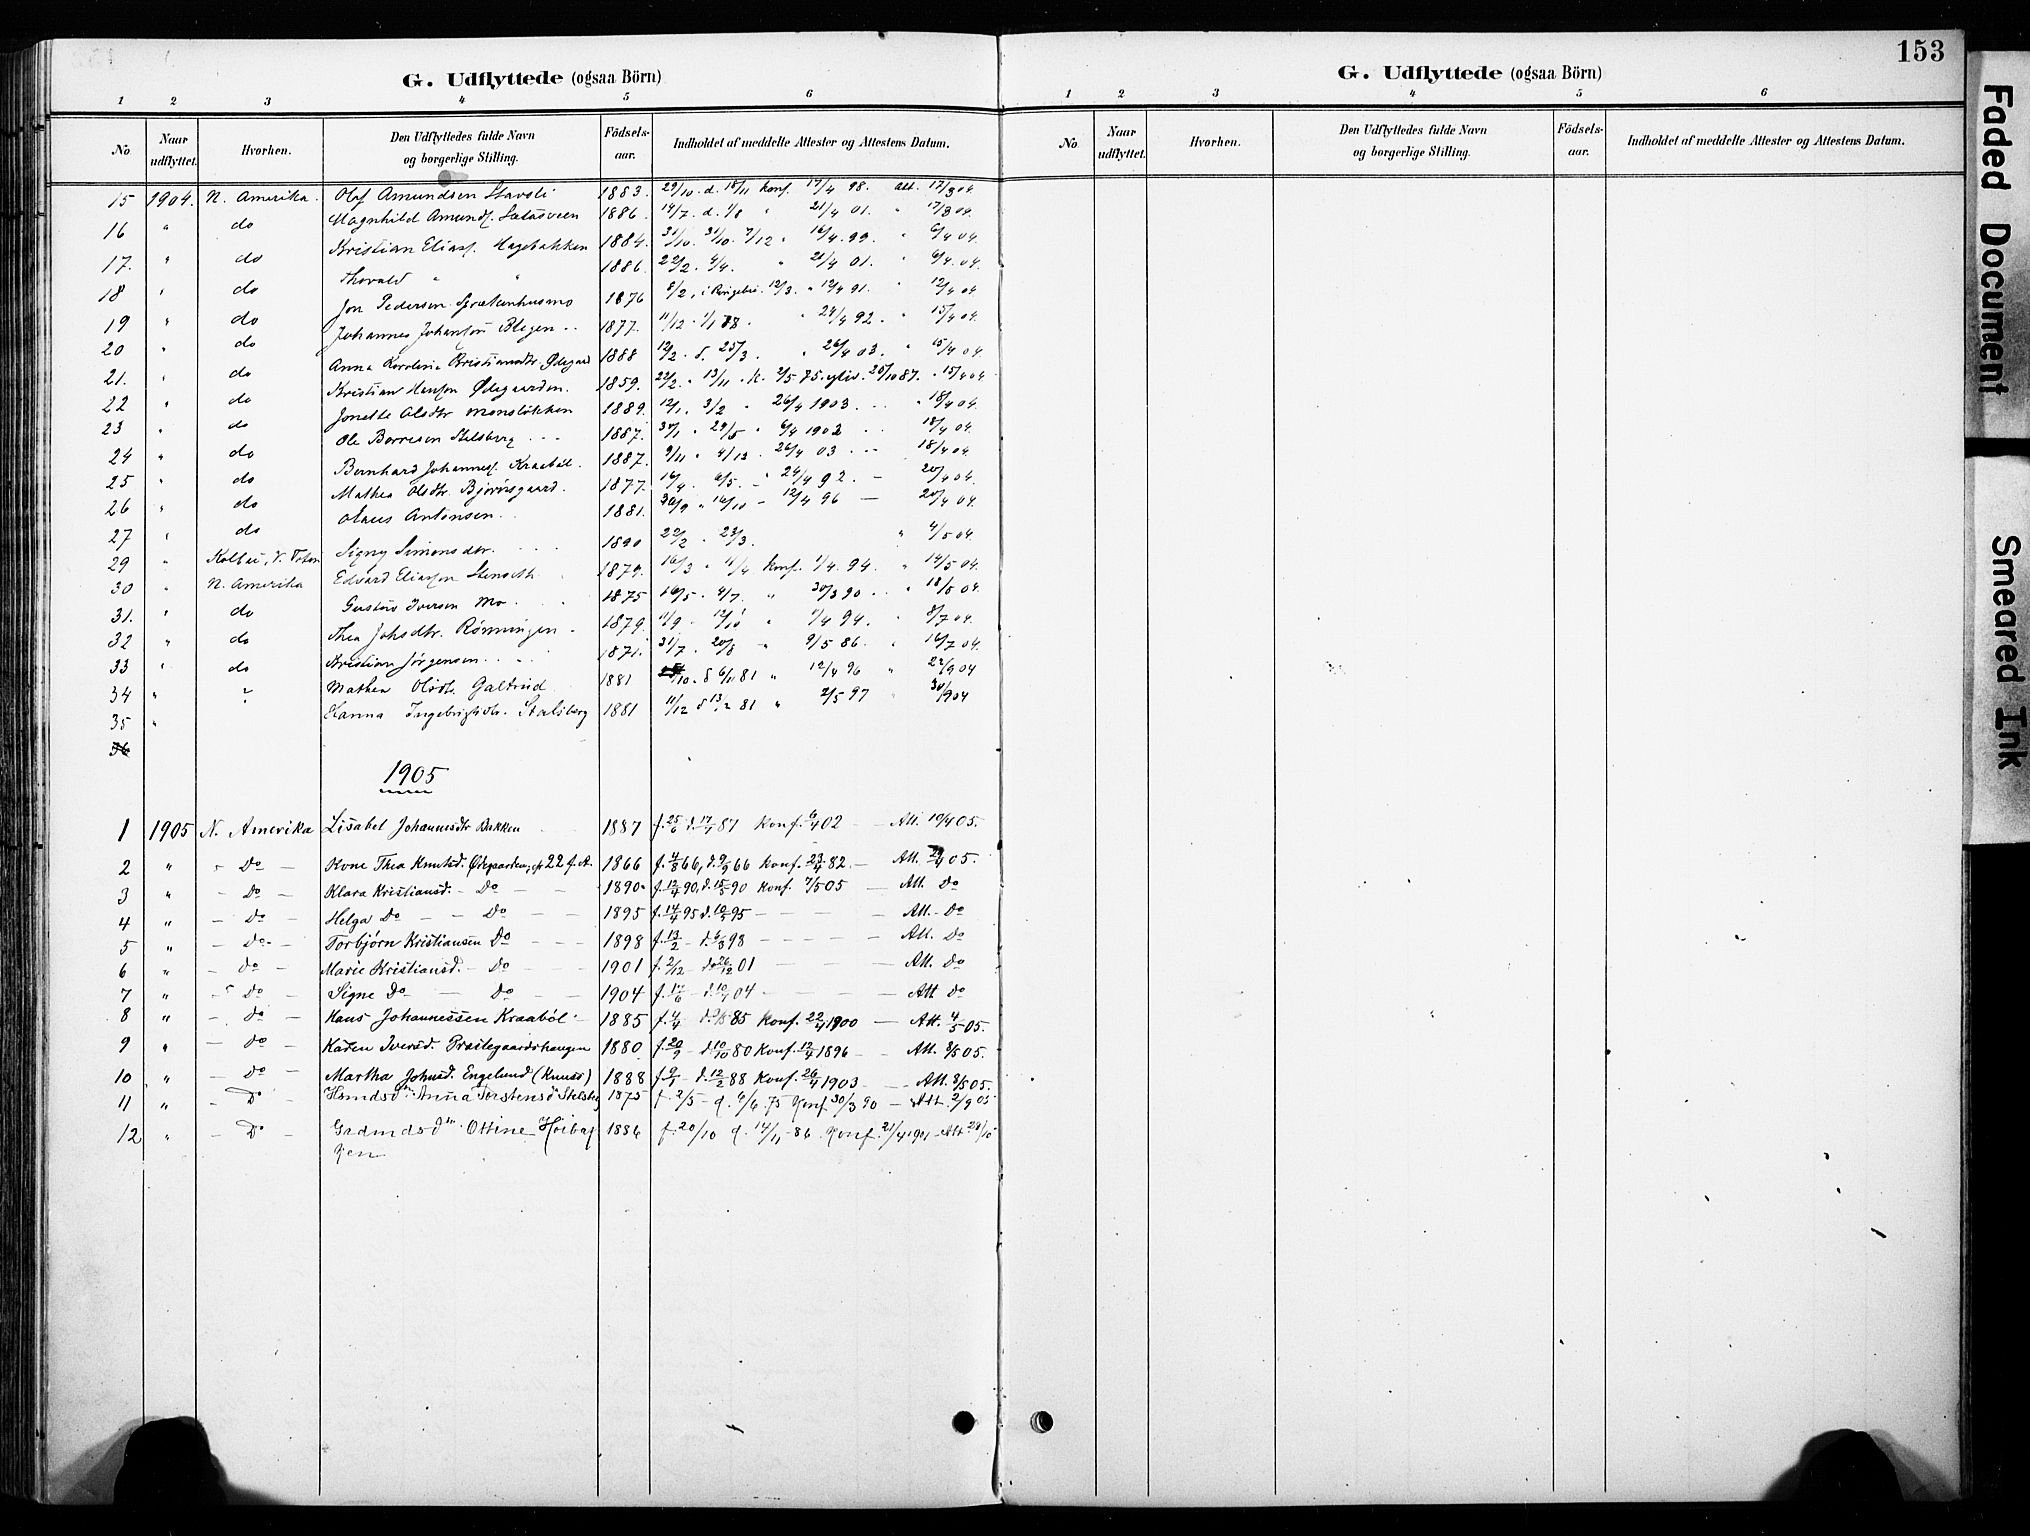 153
G. Udflyttede (ogsaa Börn)
1 2 3 4 5 6
No Naar udflyttet. Hvorhen. Den Udflyttedes fulde Navn og borgerlige Stilling. Födselsaar. Indholdet af meddelte Attester og Attestens Datum.
15 1904. N. Amerika. Olaf Amundsen Stavsli 1883. 29/10. d. 18/11 konf. 17/4 98. att. 17/3 04.
16 " do Magnhild Amunds. 1886. 14/7. d. 1/8 " 21/4 01. " 17/3 04.
17. " do Kristian Eliass. Hagebakken 1884. 31/10. 7/12 " 16/4. 99. " 6/4 04.
18 " do Thorvald " " 1886. 22/2. 4/4. " 21/4 01. " 6/4. 04.
19 " do Jon Pedersen 1876 8/2, i Ringebu. 12/3. " 12/4 91. " 12/4 04.
20 " do Johannes Johansen Blegen 1877. 11/12. 1/1 78. " 24/4 92. " 15/4 04.
21. " do Anna Karoline Kristiansdtr. Ødegaard 1888 12/2. d. 25/3. " 26/4 03. " 15/4 04.
22 " do Kristian Hansen Ødegaarden. 1859. 22/2. " 13/11. K. 2/5 75. 25/10 87. " 15/4 04
23 " do Jonette Olsdtr 1889. 12/1. 3/2 " 26/4 1903. " 18/4 04.
24 " do Ole Borresen Stilsberg 1887. 30/1 " 29/5 " 6/4 1902 18/4 04.
25 " do Bernhard Johanness. Kraabøl. 1887. 9/11 " 4/12. 26/4 03. 18/4 04
26 " do Mathea Olsdtr. Bjørnsgaard. 1877. 16/4. 6/5. " 24/4 92. 20/4 04.
27 " do Antonsen 1881. 30/9 " 16/10 — 12/4 96 — 20/4 04.
29 " Kolbu, V. Toten Signy Simonsdtr. 1890 22/2 . 23/3. " 4/5 04.
30 " N. Amerika Edvard Eliassen Stenseth 1879. 16/3 " 11/4 konf. 1/4. 94. " 14/5 04.
31. " do Gustav Iversen Mo 1875 16/5. 4/7. " 30/3 90 " 18/5 04.
32 " do Thea Johsdtr. Rønningen 1879. 11/9. 12/10 " 1/4 94. " 8/7 04.
33 " do Kristian Jörgensen 1871. 31/7. 20/8 " 9/5 86. " 16/7 04.
34 " " Mathea Olsdtr. Galtrud 1881 /10. d 6/11 81 " 12/4 96 " 22/9 04
35 " Hanna Ingebrigtsdtr. Stalsberg 1881 11/12 d 13/2 81 " 2/5 97 30/9 04
36
1905
1 1905 N. Amerika Lisabet Johannesdtr Bakken 1887 f. 25/6 d. 17/7 87 konf. 6/4 02 — Att. 10/4 05.
2 " " Do — Kone Thea Knutsd. Ødegaarden, 22 f. A. 1866 f. 4/8 66, d. 9/9 66 konf. 23/4 82. — Att. 29/4 05.
3 " — Do — Klara Kristiansd. — Do — 1890 f. 12/4 90, d. 15/5 90 konf. 7/5 05 — Att. Do
4 " — Do — Helga Do — — Do — 1895 f. 14/4 95 d. 95 — — — Att. Do
5 " — Do — Torbjørn Kristiansen Do — 1898 f. 13/2 — d. 6/3 98 — — — Att. Do
6 " — Do — Marie Kristiansd. — Do — 1901 f. 2/12 — d. 26/12 01 — — — Att. Do
7 " — Do — Signe Do — Do — 1904 f. 17/6 — d. 10/7 04 — — — Att Do
8 " — Do — Hans Johannessen Kraabøl 1885 f. 4/4 — d. 85 konf. 22/4 1900 — Att. 4/5 05.
9 " — Do — Karen Iversd. Præstegaardshaugen 1880 f. 20/9 — d. 10/10 80 konf. 12/4 1896 — Att. 8/5 05.
10 " — Do — Martha Johnsd. Engelund (Knuse) 1888 f. 9/1 — d. 12/2 88 konf. 26/4 1903 — — Att. 8/5 05.
11 " — Do Anna Torstensd Stilsby 1875 f. 2/5 — d. 6/6 75 Konf 30/3 90 — Att. 2/9 05
12 " — Do — Grdmdsd Ottine Høibak 1886 f. 20/10 d. 14/11 - 86 Konf. 21/4 1901 — Att 28/10
ken
G. Udflyttede (ogsaa Börn)
1 2 3 4 5 6
No Naar udflyttet. Hvorhen. Den Udflyttedes fulde Navn og borgerlige Stilling. Födselsaar. Indholdet af meddelte Attester og Attestens Datum.
Faded Document
Smeared Ink